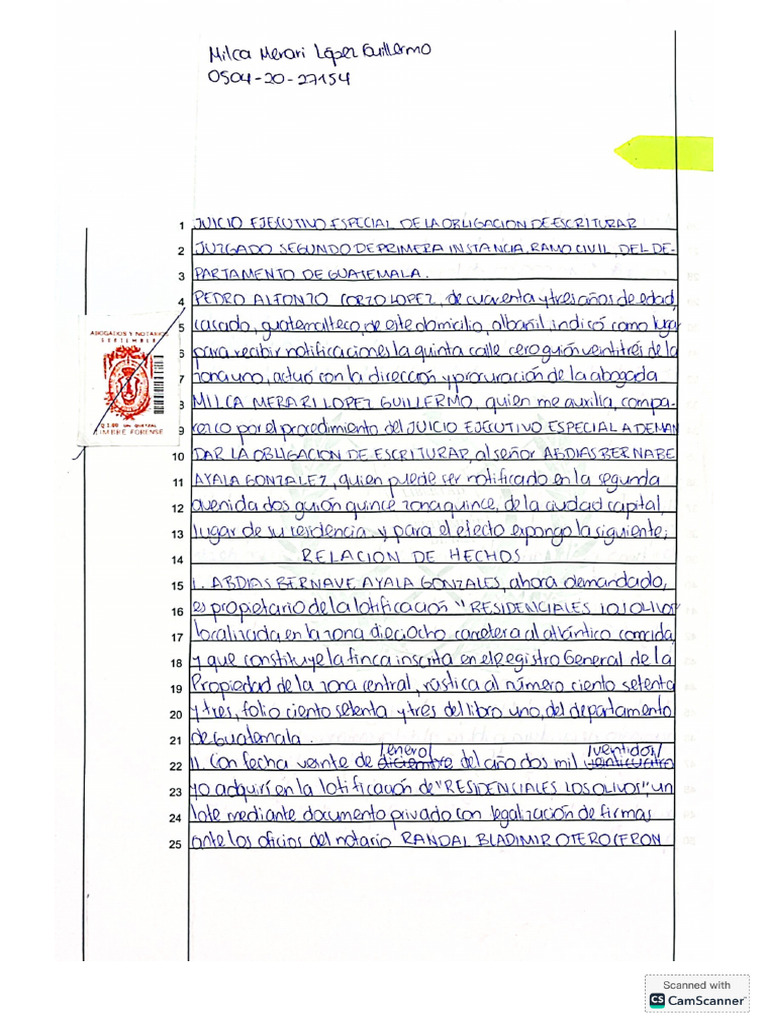 Milca Merari López Guillermo
0504-20-27154
1 JUICIO EJECUTIVO ESPECIAL DE LA OBLIGACION DE ESCRITURAR
2 JUZGADO SEGUNDO DE PRIMERA INSTANCIA, RAMO CIVIL, DEL DE-
3 PARTAMENTO DE GUATEMALA.
4 PEDRO ALFONZO CORZO LOPEZ, de cuarenta y tres años de edad,
5 casado, guatemalteco, de este domicilio, albañil, indicó como lugar
6 para recibir notificaciones la quinta calle cero guión veintitrés de la
7 zona uno, actuó con la dirección y procuración de la abogada
8 MILCA MERARI LOPEZ GUILLERMO, quien me auxilia, compa-
9 rezco por el procedimiento del JUICIO EJECUTIVO ESPECIAL A DEMAN
10 DAR LA OBLIGACION DE ESCRITURAR, al señor ABDIAS BERNABE
11 AYALA GONZALEZ, quien puede ser notificado en la segunda
12 avenida dos guión quince zona quince, de la ciudad capital,
13 lugar de su residencia y para el efecto expongo la siguiente;
14 RELACION DE HECHOS
15 I. ABDIAS BERNAVE AYALA GONZALES, ahora demandado,
16 es propietario de la lotificación "RESIDENCIALES LOS OLIVOS"
17 localizada en la zona dieciocho carretera al atlántico conocida,
18 y que constituye la finca inscrita en el Registro General de la
19 Propiedad de la zona central, rústica al número ciento setenta
20 y tres, folio ciento setenta y tres del libro uno, del departamento
21 de Guatemala.
/enero/ /veintidos/
22 II. Con fecha veinte de diciembre del año dos mil veinticuatro
23 yo adquirí en la lotificación de "RESIDENCIALES LOS OLIVOS", un
24 lote mediante documento privado con legalización de firmas
25 ante los oficios del notario RANDAL BLADIMIR OTERO CERON
ABOGADOS Y NOTARIOS
Q 1.00 UN QUETZAL
TIMBRE FORENSE
Scanned with
CS CamScanner